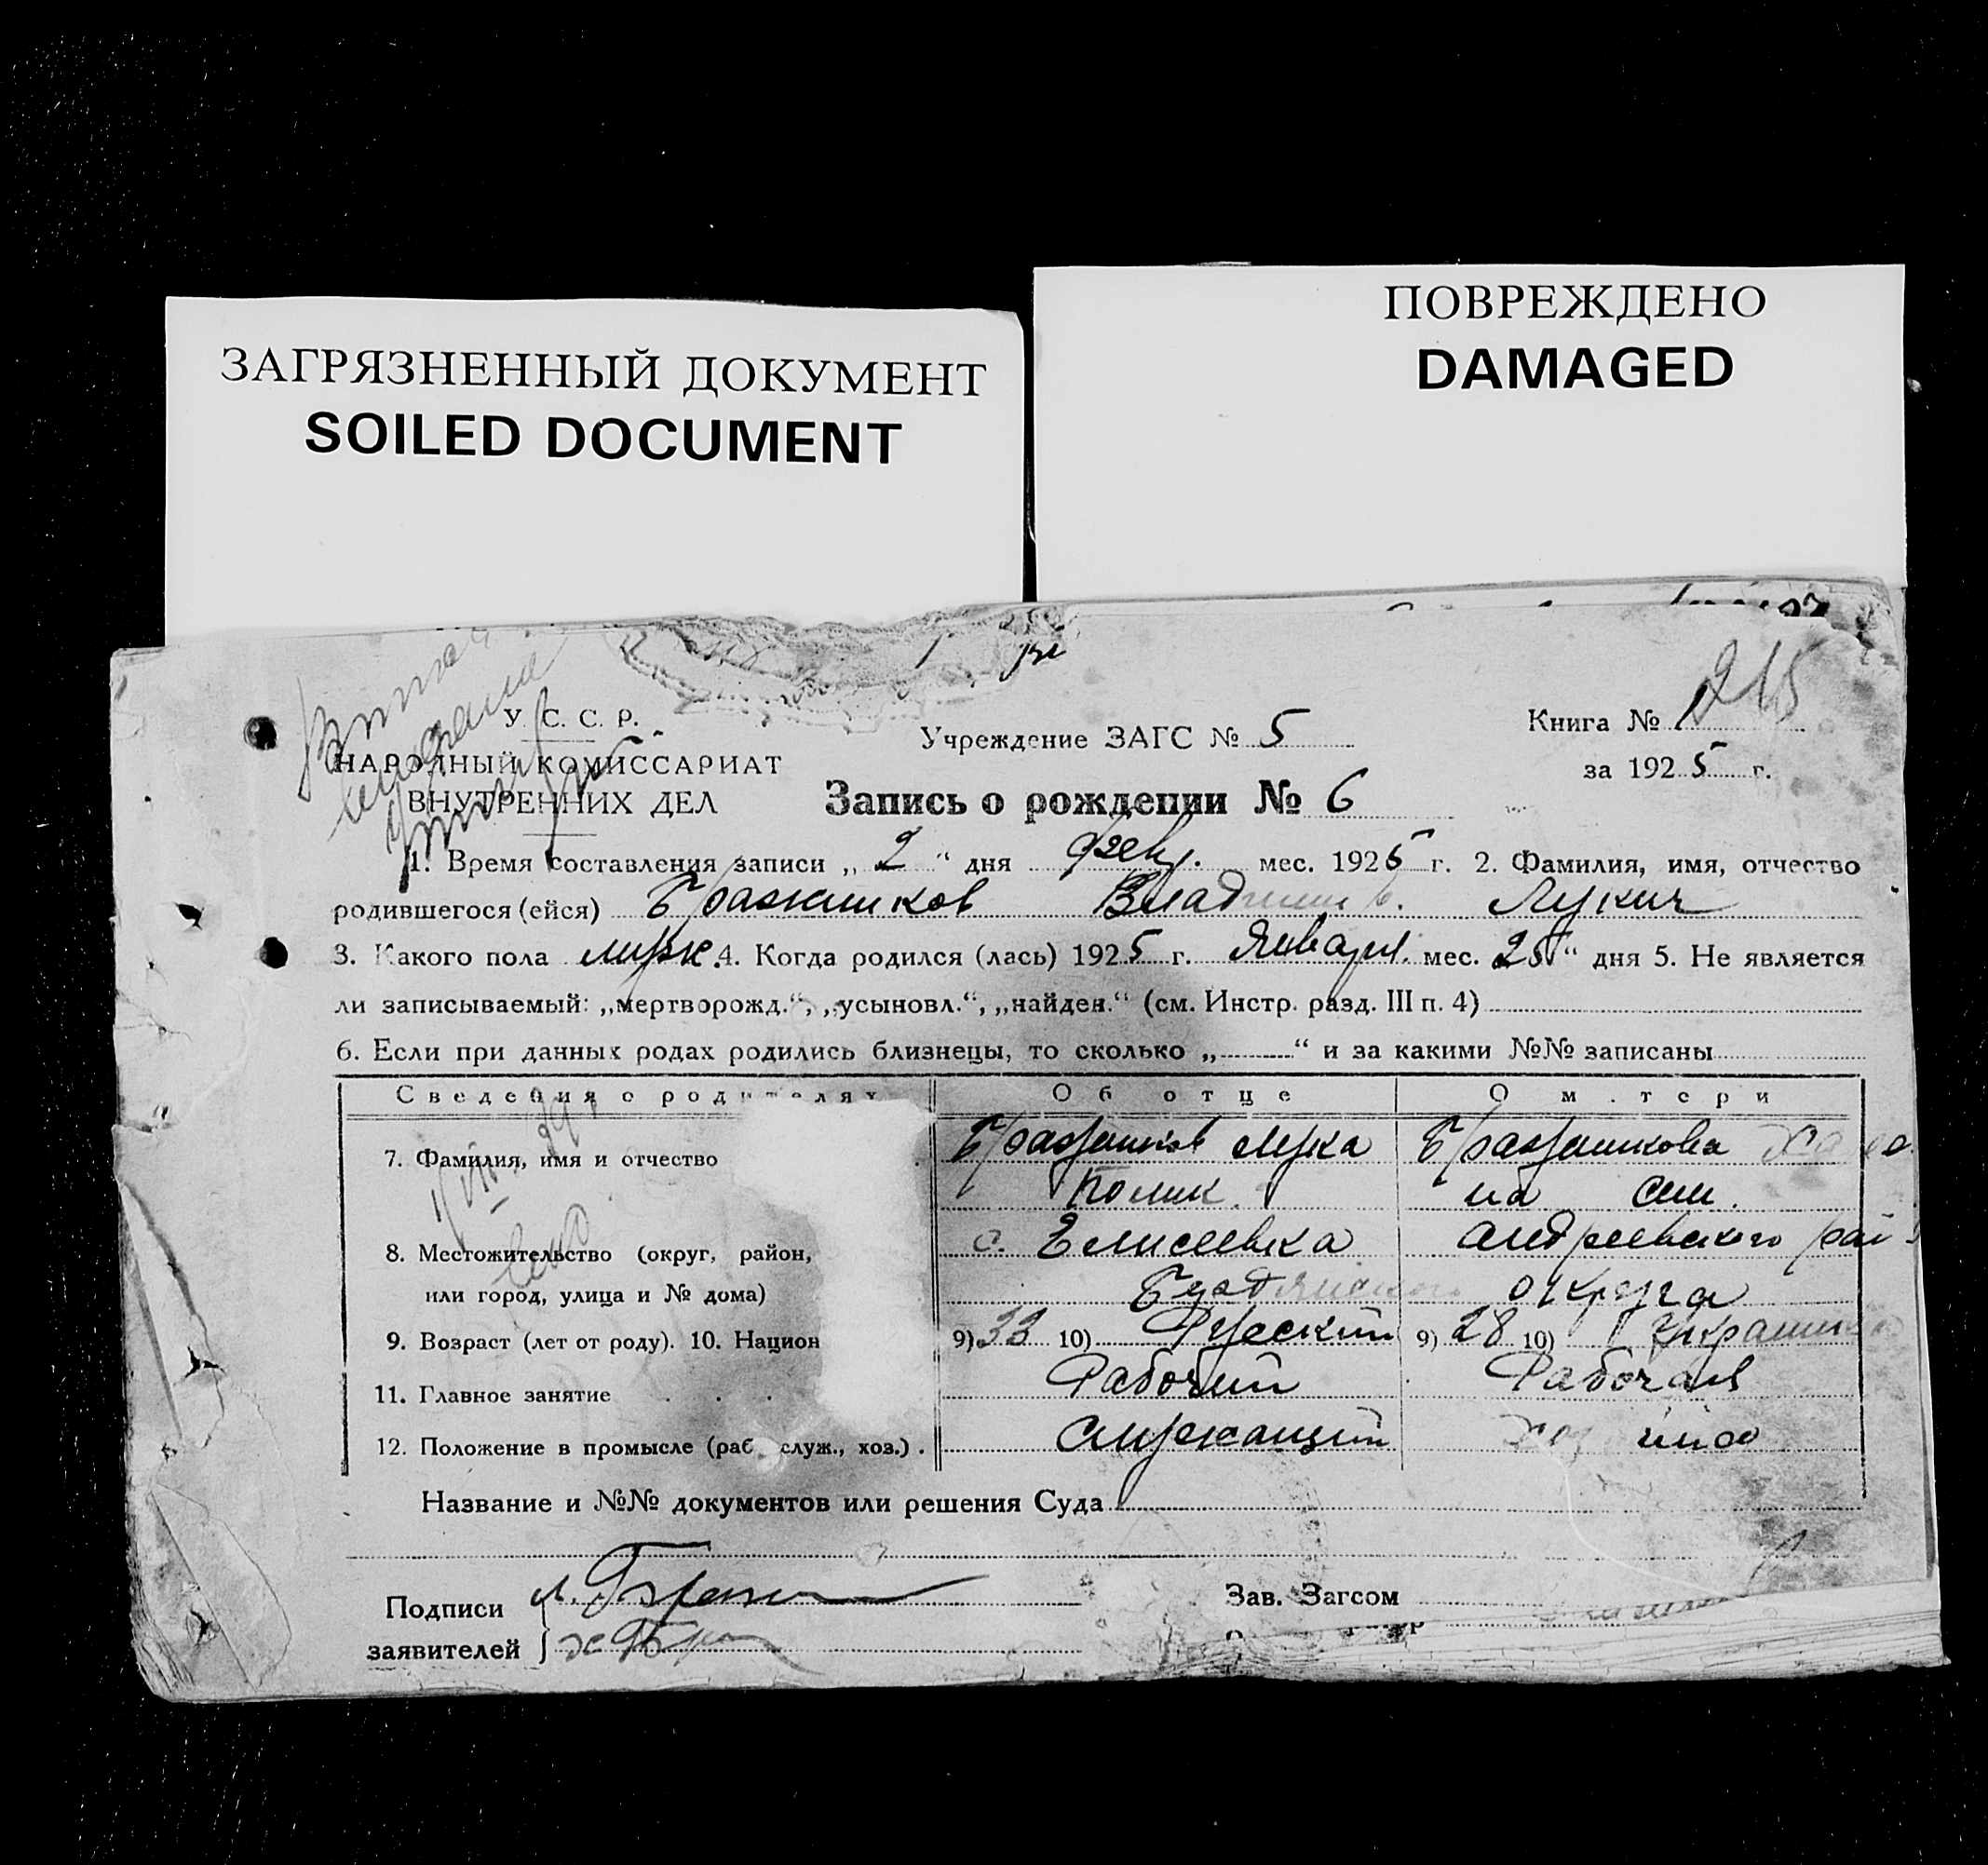 ЗАГРЯЗНЕННЫЙ ДОКУМЕНТ
SOILED DOCUMENT
ПОВРЕЖДЕНО
DAMAGED
215
У. С. С. Р.
НАРОДНЫЙ КОМИССАРИАТ
ВНУТРЕННИХ ДЕЛ
Учреждение ЗАГС № 5
Книга № 1
за 1925 г.
Запись о рождении № 6
1. Время составления записи „ 2 “ дня февр. мес. 1925 г. 2. Фамилия, имя, отчество
родившегося (ейся) Бражников Владимир. Лукич
3. Какого пола мужс. 4. Когда родился (лась) 1925 г. Января. мес. 25 “ дня 5. Не является
ли записываемый: „мертворожд.“, „усыновл.“, „найден.“ (см. Инстр. разд. III п. 4)
6. Если при данных родах родились близнецы, то сколько „ “ и за какими №№ записаны
Сведения о родителях Об отце О м тери
7. Фамилия, имя и отчество Бражников Лука Бражникова
8. Местожительство (округ, район, с. Елисеевка Андреевского рай
или город, улица и № дома) Бердянского округа
9. Возраст (лет от роду). 10. Национ 9) 33 10) Русский 9) 28 10) Украинка
11. Главное занятие . . . Рабочий Рабочая
12. Положение в промысле (раб служ., хоз.) . служащий
Название и №№ документов или решения Суда
Подписи
заявителей
Зав. Загсом